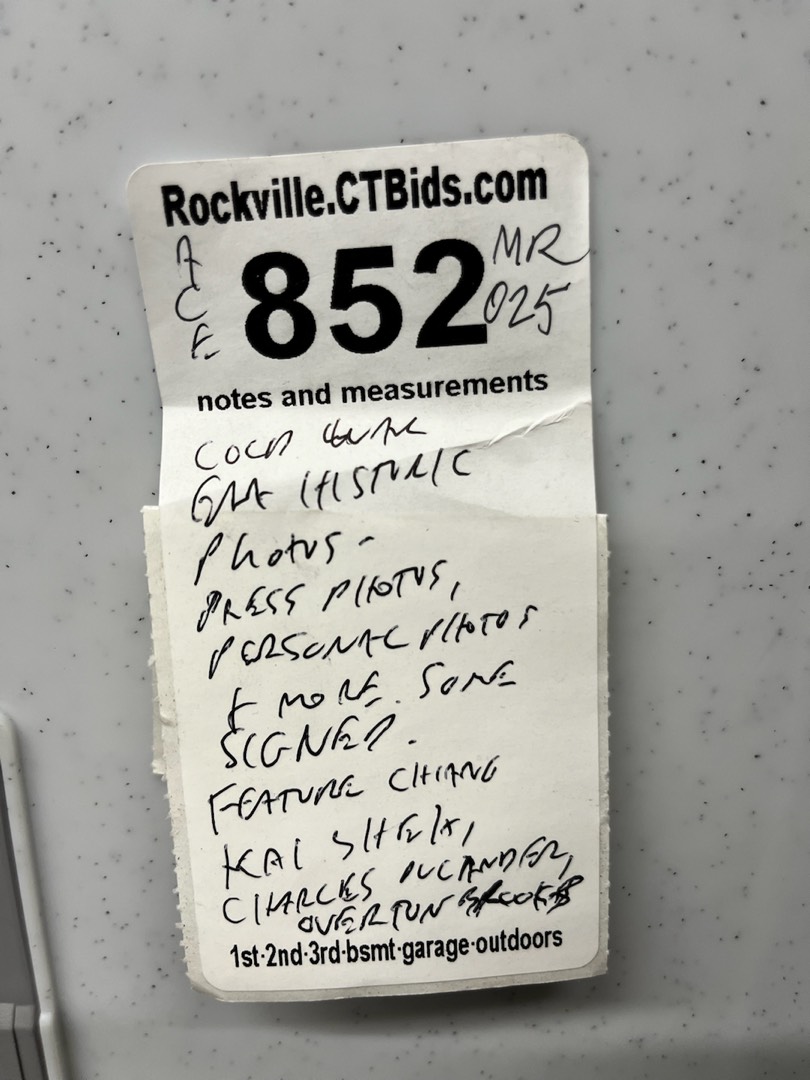 Rockville.CTBids.com
ACE 852 MR 025
notes and measurements
COLD WAR
ERA HISTORIC
PHOTOS -
PRESS PHOTOS,
PERSONAL PHOTOS
+ MORE. SOME
SIGNED.
FEATURE CHIANG
KAI SHEK,
CHARLES
OVERTON BROOKS
1st·2nd·3rd·bsmt·garage·outdoors